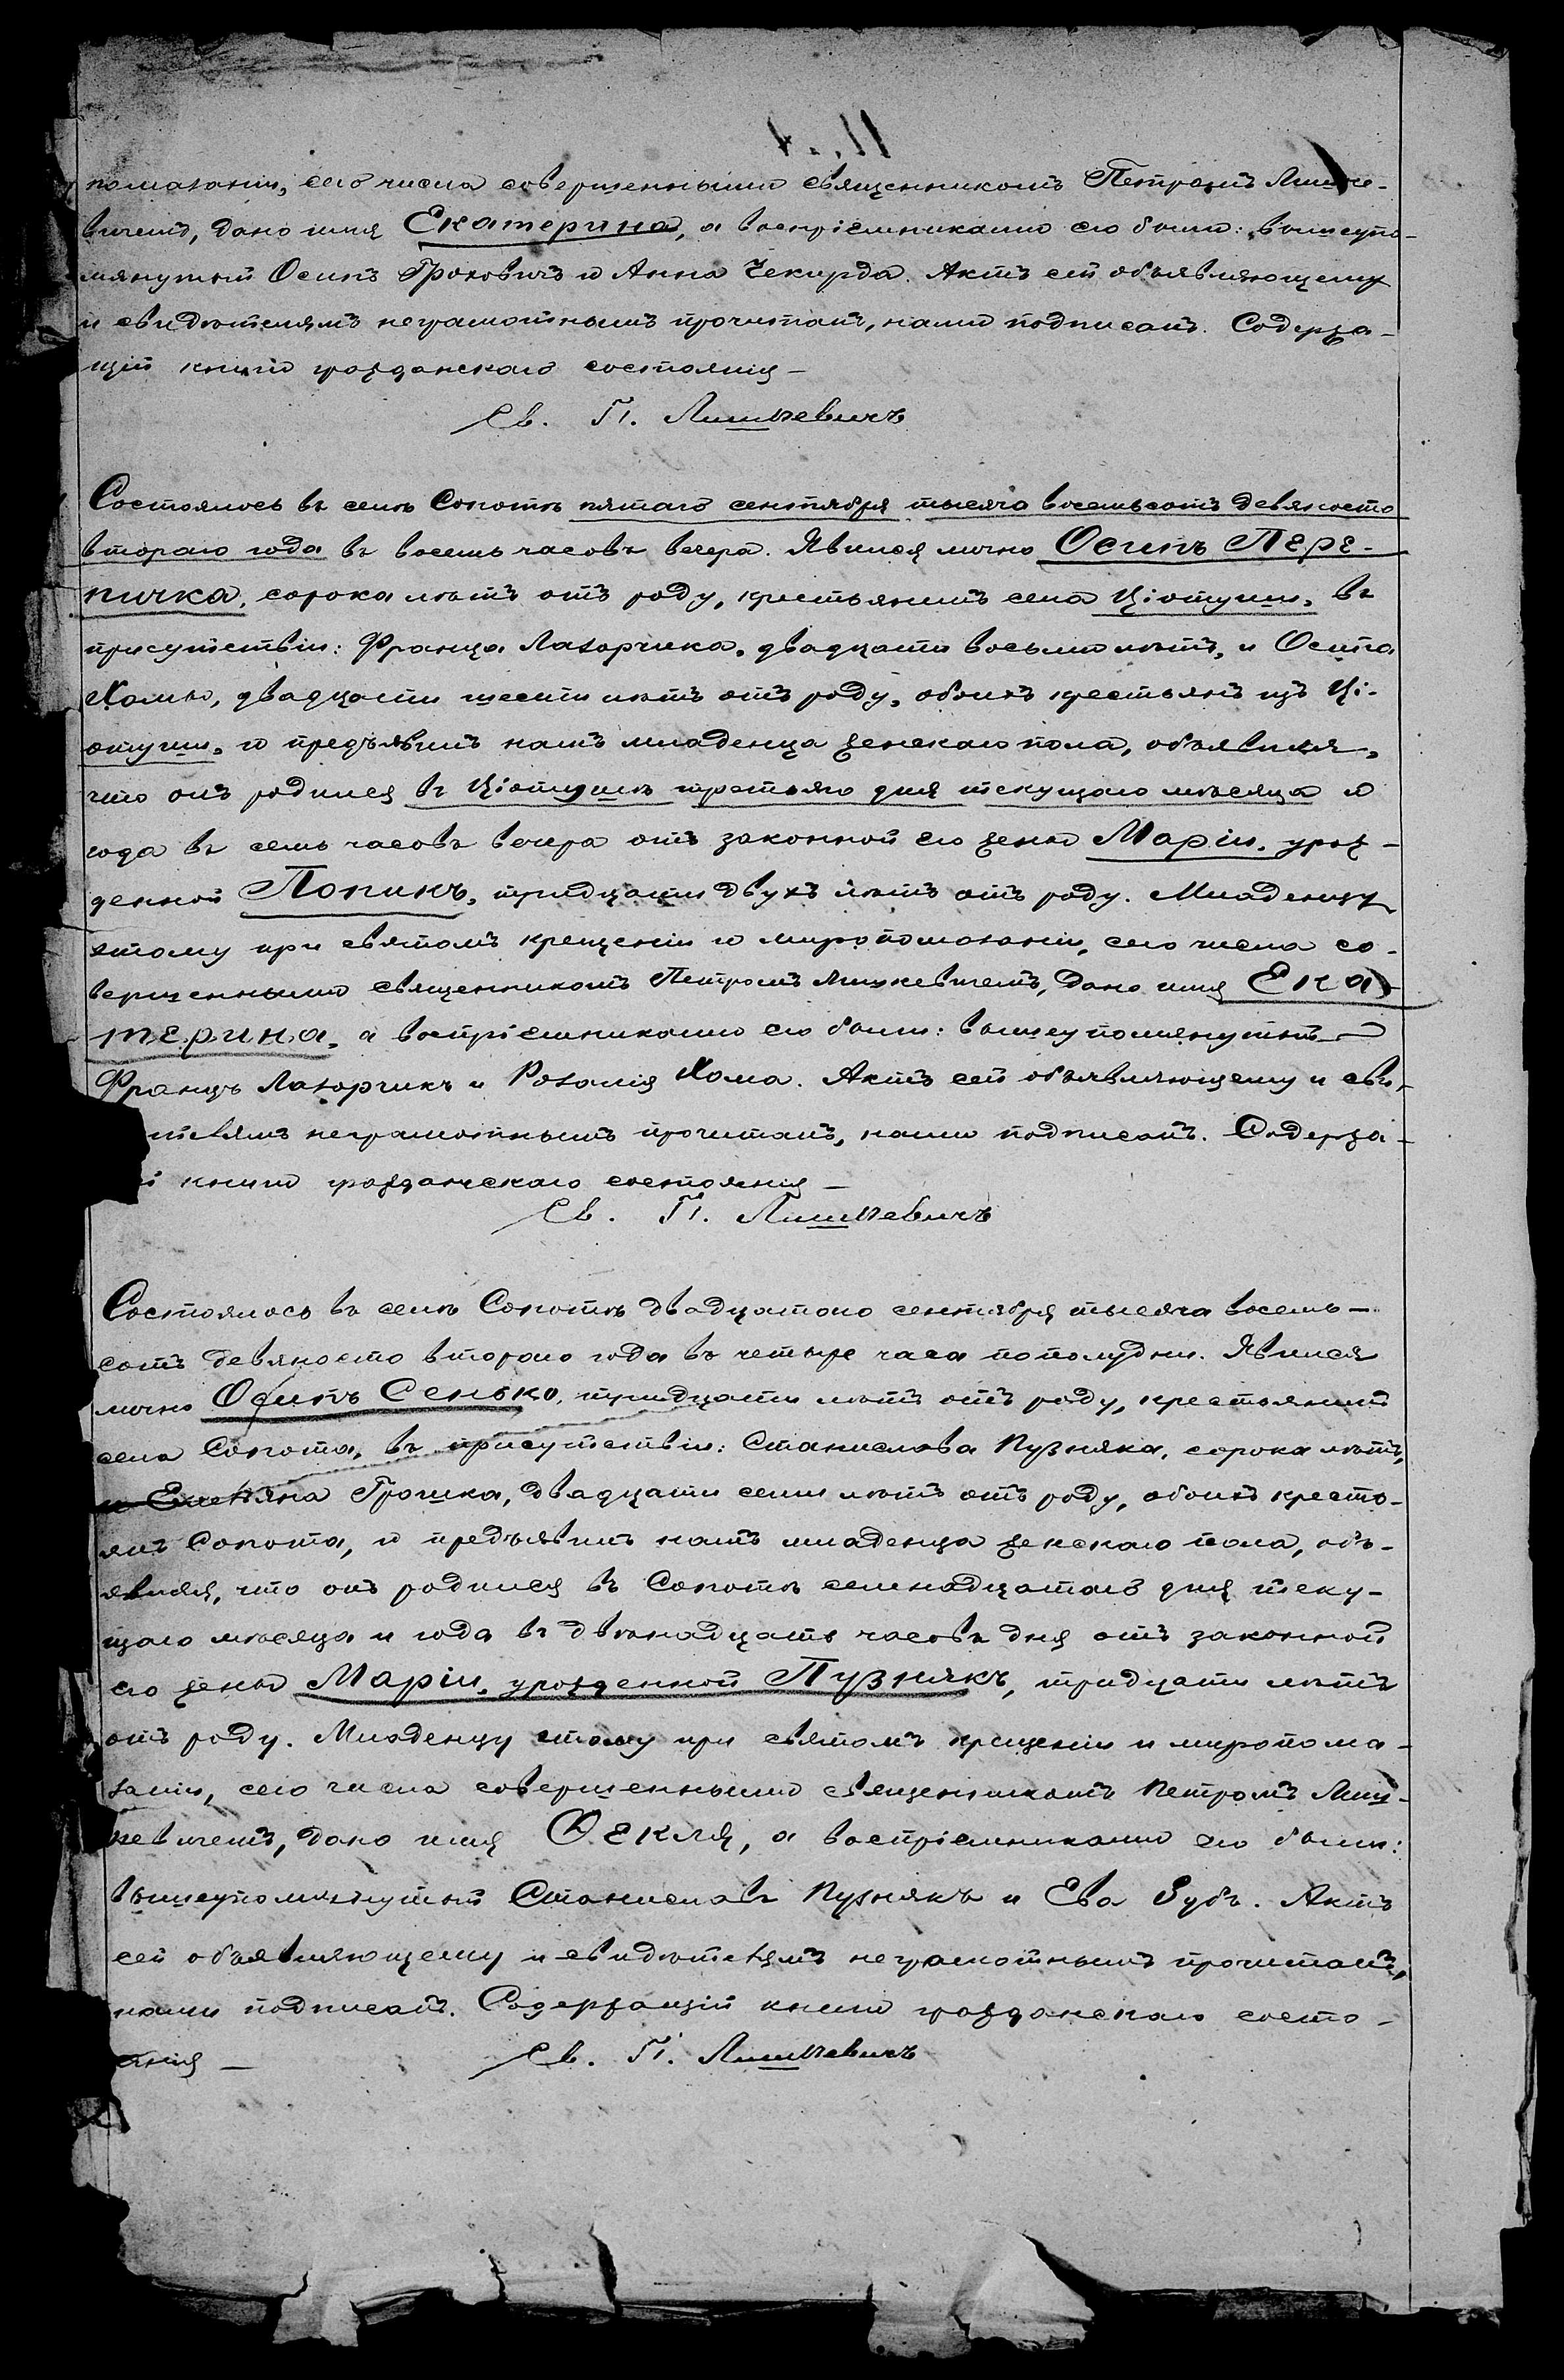 помазаніи, сего числа совершенными священникомъ Петромъ Лишке-
вичемъ, дано имя Екатерина, а воспріемниками его были: вышеупо-
мянутый Осипъ Гроховичъ и Анна Чекирда. Актъ сей объявляющему
и свидѣтелямъ неграмотнымъ прочитанъ, нами подписанъ. Содержа-
щій книги гражданскаго состоянія –
Св. П. Лишкевичъ
Состоялось въ селѣ Сопотѣ пятаго сентября тысяча восемьсотъ девяносто
втораго года въ восемь часовъ вечера. Явился лично Осипъ Пере-
пичка, сорока лѣтъ отъ роду, крестьянинъ села Ціотуши, въ
присутствіи: Франца Лазорчика, двадцати восьми лѣтъ, и Осипа
Хомы, двадцати шести лѣтъ отъ роду, обоихъ крестьянъ изъ Ці-
отуши, и предъявилъ намъ младенца женскаго пола, объявляя,
что онъ родился въ Ціотушѣ третьяго дня текущаго мѣсяца и
года въ семь часовъ вечера отъ законной его жены Маріи, урож-
денной Попикъ, тридцати двухъ лѣтъ отъ роду. Младенцу
этому при святомъ крещеніи и миропомазаніи, сего числа со-
вершенными священникомъ Петромъ Лишкевичемъ, дано имя Ека-
терина, а воспріемниками его были: вышеупомянутый
Францъ Лазорчикъ и Розалія Хома. Актъ сей объявляющему и сви-
телямъ неграмотнымъ прочитанъ, нами подписанъ. Содержа-
й книги гражданскаго состоянія –
Св. П. Лишкевичъ
Состоялось въ селѣ Сопотѣ двадцатаго сентября тысяча восемь-
сотъ девяносто втораго года въ четыре часа пополудни. Явился
лично Осипъ Сенько, тридцати лѣтъ отъ роду, крестьянинъ
села Сопота, въ присутствіи: Станислава Пузняка, сорока лѣтъ,
и Емельяна Грошка, двадцати семи лѣтъ отъ роду, обоихъ кресть-
янъ Сопота, и предъявилъ намъ младенца женскаго пола, объ-
являя, что онъ родился въ Сопотѣ семнадцатаго дня теку-
щаго мѣсяца и года въ двѣнадцать часовъ дня отъ законной
его жены Маріи, урожденной Пузнякъ, тридцати лѣтъ
отъ роду. Младенцу этому при святомъ крещеніи и миропома-
заніи, сего числа совершенными священникомъ Петромъ Лиш-
кевичемъ, дано имя Ѳекля, а воспріемниками его были:
вышеупомянутый Станиславъ Пузнякъ и Ева Зубъ. Актъ
сей объявляющему и свидѣтелямъ неграмотнымъ прочитанъ,
нами подписанъ. Содержащій книги гражданскаго состо-
янія –
Св. П. Лишкевичъ